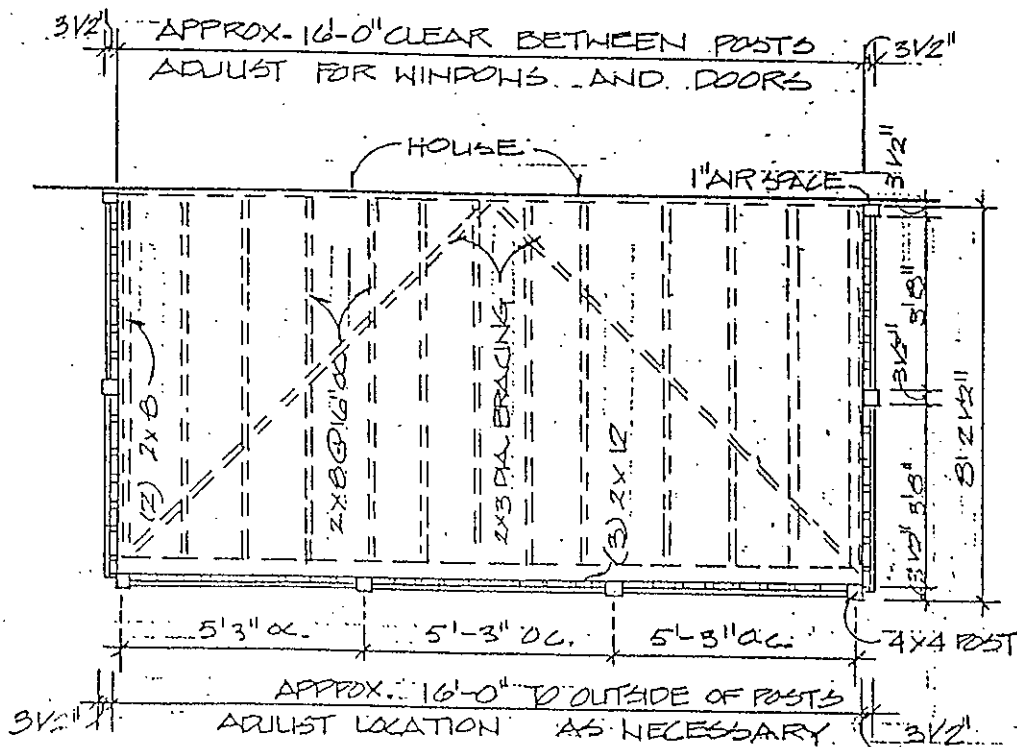 3½" APPROX. 16'-0" CLEAR BETWEEN POSTS 3½"
ADJUST FOR WINDOWS AND DOORS
HOUSE
1" AIR SPACE
3½"
3'8"
3½"
8' 2½"
3'8"
3½"
(2) 2x8
2x8 @ 16" OC
2x3 DIA. BRACING
(3) 2x12
5'3" OC. 5'-3" OC. 5'-3" OC.
4x4 POST
APPROX. 16'-0" TO OUTSIDE OF POSTS
3½" ADJUST LOCATION AS NECESSARY 3½"